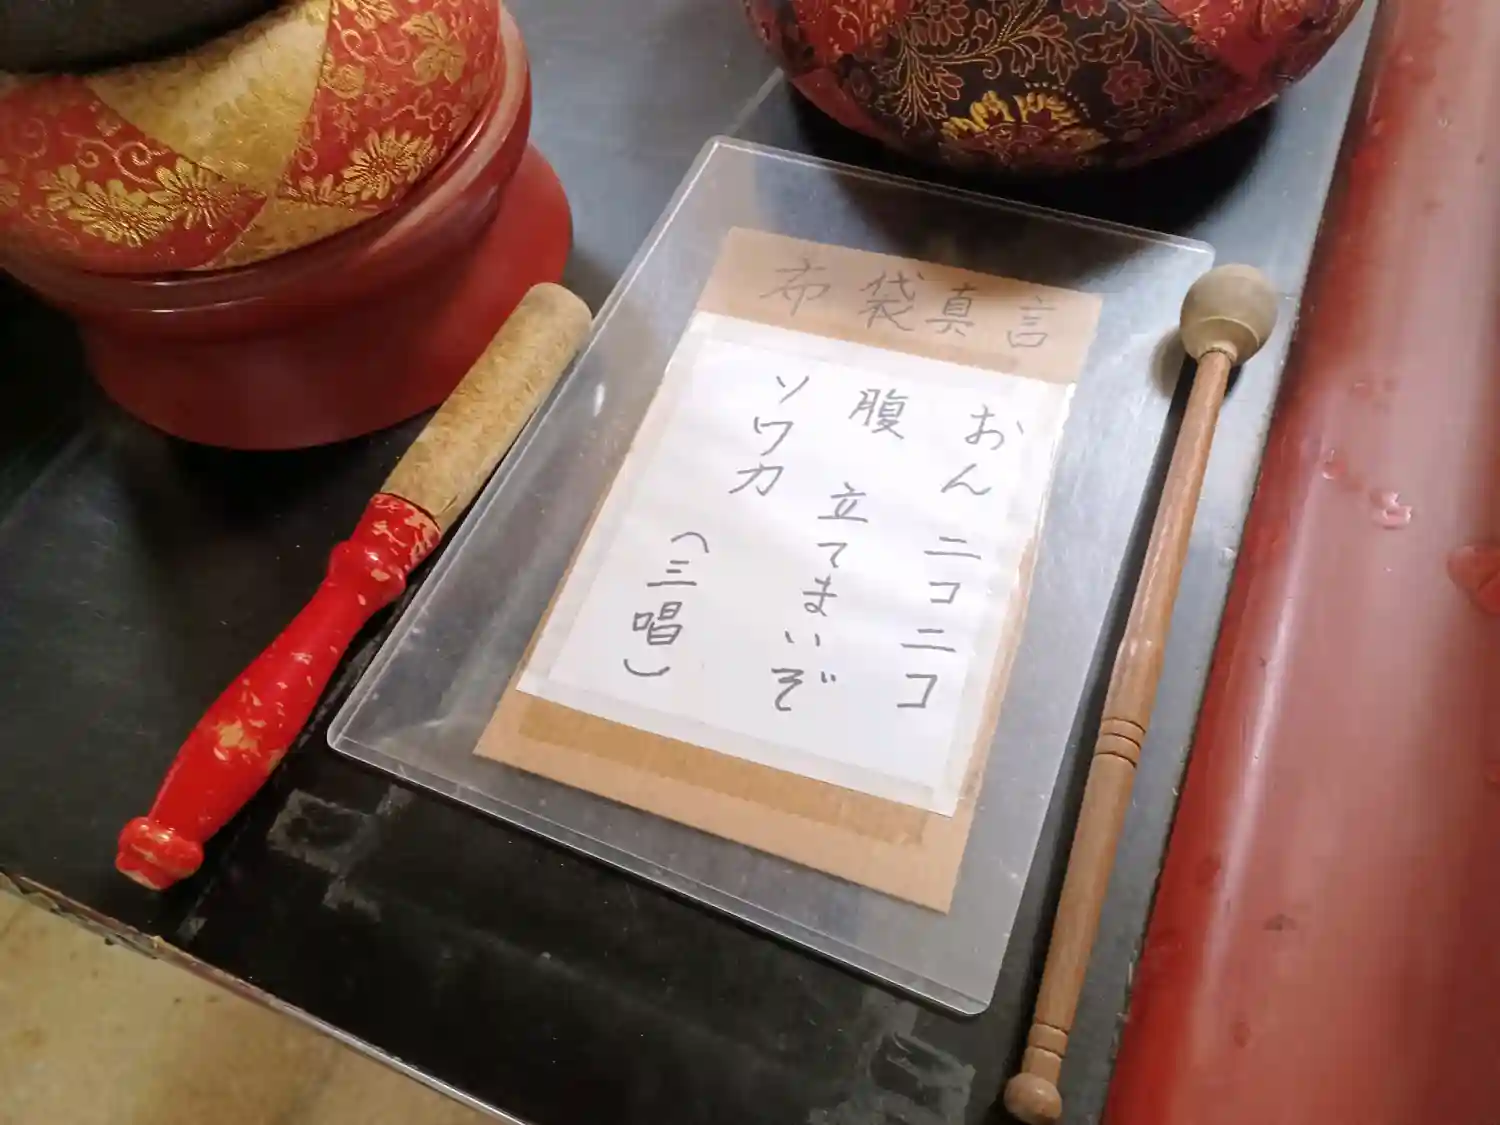 布袋真言
おんニコニコ
腹立てまいぞ
ソワカ
(三唱)